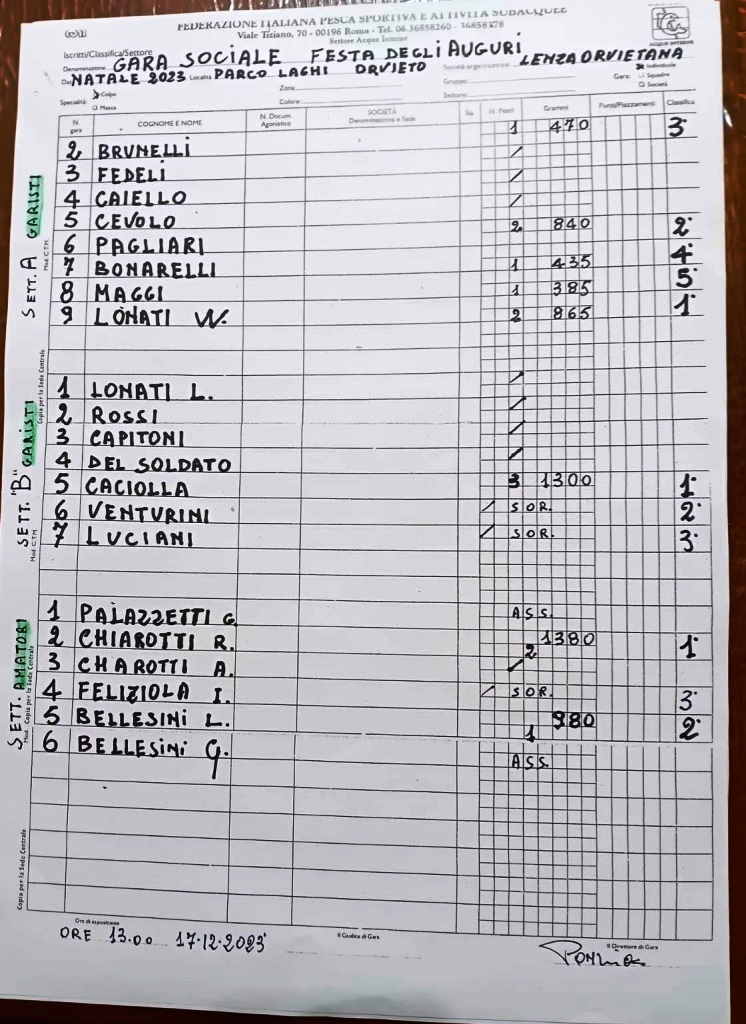 FEDERAZIONE ITALIANA PESCA SPORTIVA E ATTIVITÀ SUBACQUEE
Viale Tiziano, 70 - 00196 Roma - Tel. 06.36858260 - 36858378
Settore Acque Interne
ACQUE INTERNE
Iscritti/Classifica/Settore
Denominazione GARA SOCIALE FESTA DEGLI AUGURI Società organizzatrice LENZA ORVIETANA
Da NATALE 2023 Località PARCO LAGHI ORVIETO Zona Gruppo Gara: Individuale
Squadre
Specialità Colpo Colore Settore Società
Mosca
N. gara COGNOME E NOME N. Docum. Agonistico SOCIETÀ Denominazione e Sede Sq. N. Pesci Grammi Punti/Piazzamenti Classifica
1 470 3°
2 BRUNELLI /
3 FEDELI /
4 CAIELLO /
5 CEVOLO 2 840 2°
6 PAGLIARI
7 BONARELLI 1 435 4°
8 MAGGI 1 385 5°
9 LONATI W. 2 865 1°
SETT. A GARISTI
Mod. C.T.M. Copia per la Sede Centrale
1 LONATI L. /
2 ROSSI /
3 CAPITONI /
4 DEL SOLDATO /
5 CACIOLLA 3 1300 1°
6 VENTURINI / SOR. 2°
7 LUCIANI / SOR. 3°
SETT. "B" GARISTI
Mod. C.T.M. Copia per la Sede Centrale
1 PALAZZETTI G. ASS.
2 CHIAROTTI R. 2 1380 1°
3 CHAROTTI A. /
4 FELIZIOLA I. / SOR. 3°
5 BELLESINI L. 1 980 2°
6 BELLESINI G. ASS.
SETT. AMATORI
Mod. Copia per la Sede Centrale
Copia per la Sede Centrale
Ora di esposizione
ORE 13.00 17.12.2023
Il Giudice di Gara
Il Direttore di Gara